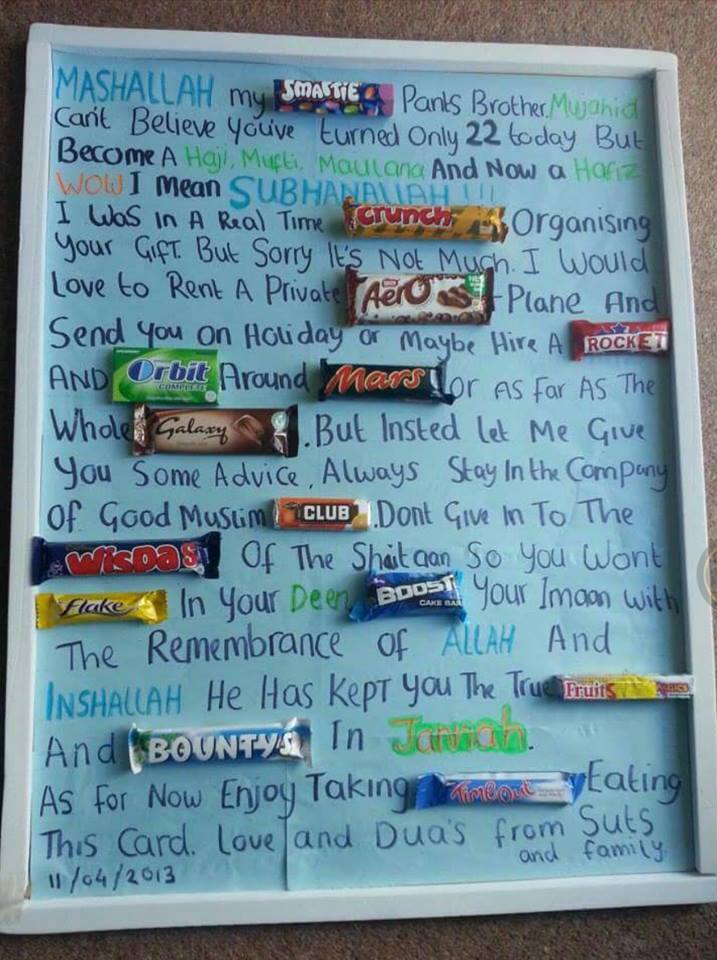 MASHALLAH my SMARTIE Pants Brother Mujahid
Can't Believe You've turned Only 22 today But
Become A Haji, Mufti, Maulana And Now a Hafiz
WOW I Mean SUBHANALLAH !!!
I Was In A Real Time Crunch Organising
your Gift. But Sorry It's Not Much. I Would
Love to Rent A Private Aero -Plane And
Send you on Holiday or Maybe Hire A ROCKET
AND Orbit COMPLETE Around Mars or As Far As The
Whole Galaxy . But Insted Let Me Give
You Some Advice, Always Stay In the Company
Of Good Muslim CLUB . Dont Give In To The
WISPAS Of The Shaitaan So You Wont
Flake In Your Deen BOOST CAKE BAR Your Imaan with
The Remembrance of ALLAH And
INSHALLAH He Has Kept you The True Fruits
And BOUNTYS In Jannah.
As For Now Enjoy Taking TimeOut Eating
This Card. Love and Dua's from Suts
and family
11/04/2013